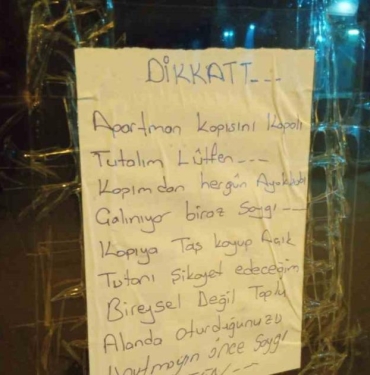 DİKKATT___
Apartman kapısını kapalı
Tutalım Lütfen___
Kapımdan hergün Ayakkabı
Çalınıyor biraz Saygı___
Kapıya Taş koyup Açık
Tutanı Şikayet edeceğim
Bireysel Değil Toplu
Alanda oturduğunuzu
Unutmayın önce Saygı